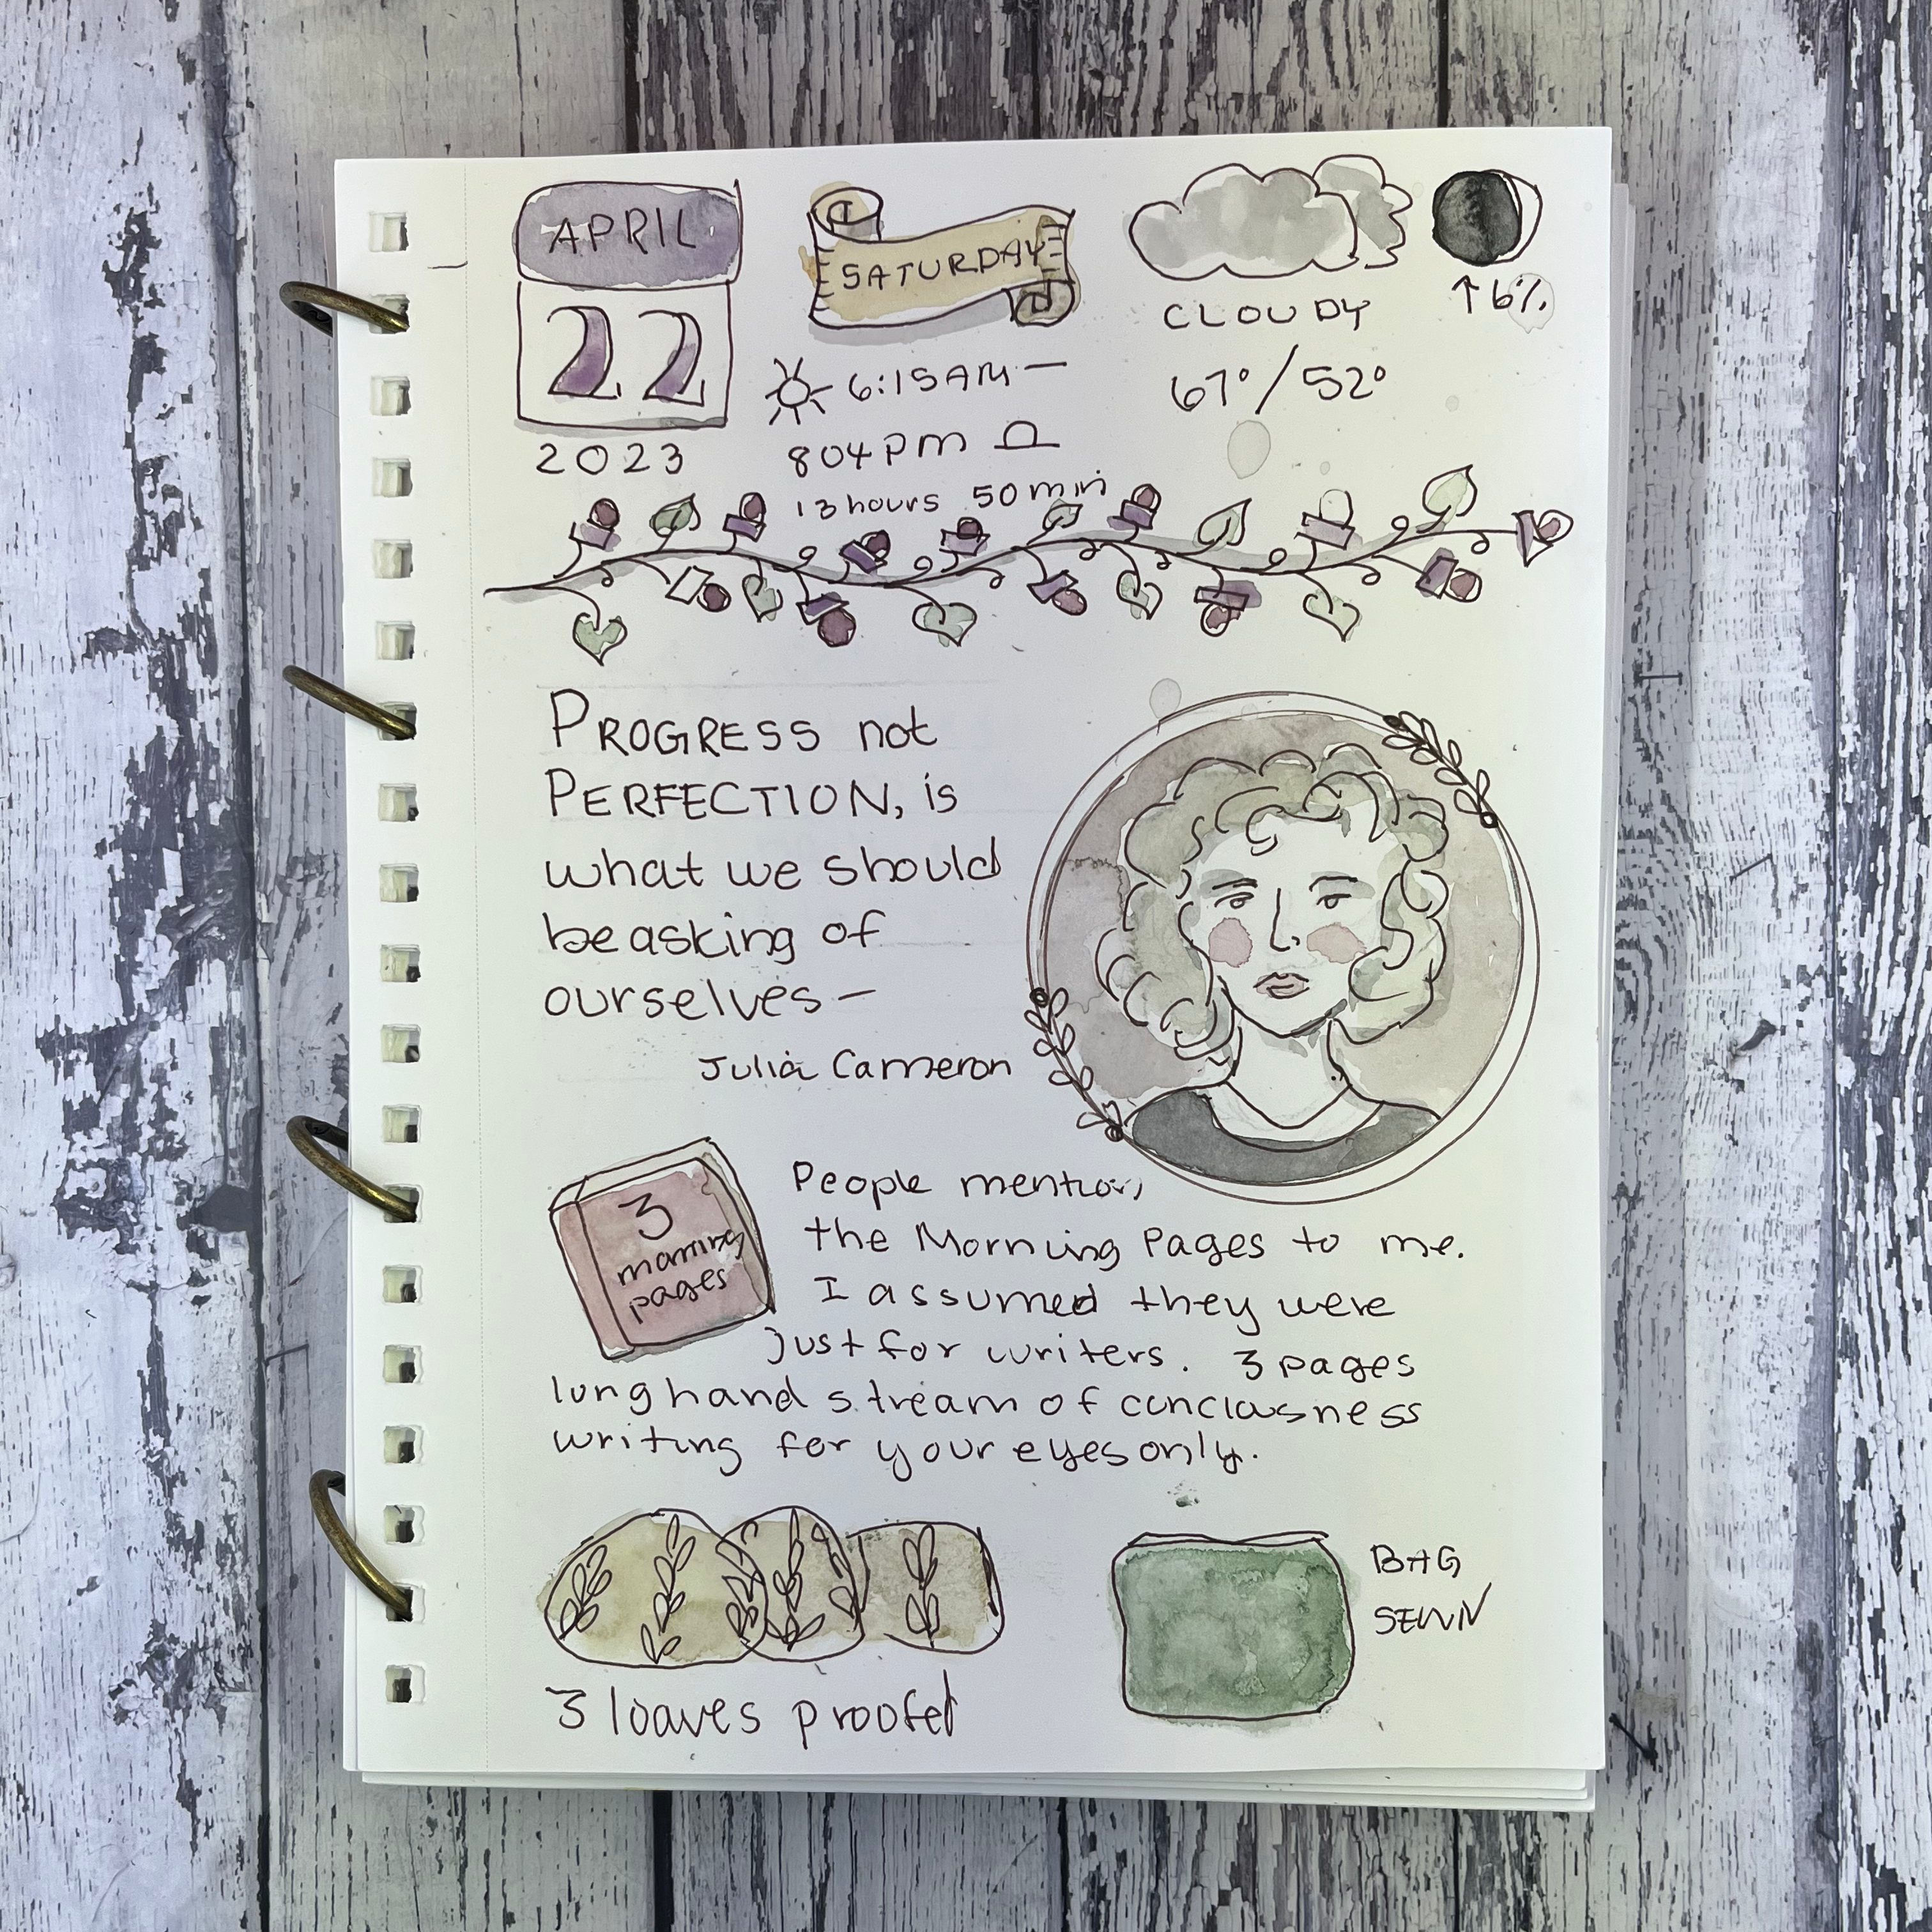 APRIL
22
2023
SATURDAY
6:15AM —
804PM
13 hours 50 min
CLOUDY
67°/52°
↑6%
PROGRESS not
PERFECTION, is
what we should
be asking of
ourselves —
Julia Cameron
3
morning
pages
People mention
the Morning Pages to me.
I assumed they were
just for writers. 3 pages
longhand stream of conciousness
writing for your eyes only.
3 loaves proofed
BAG
SEWN